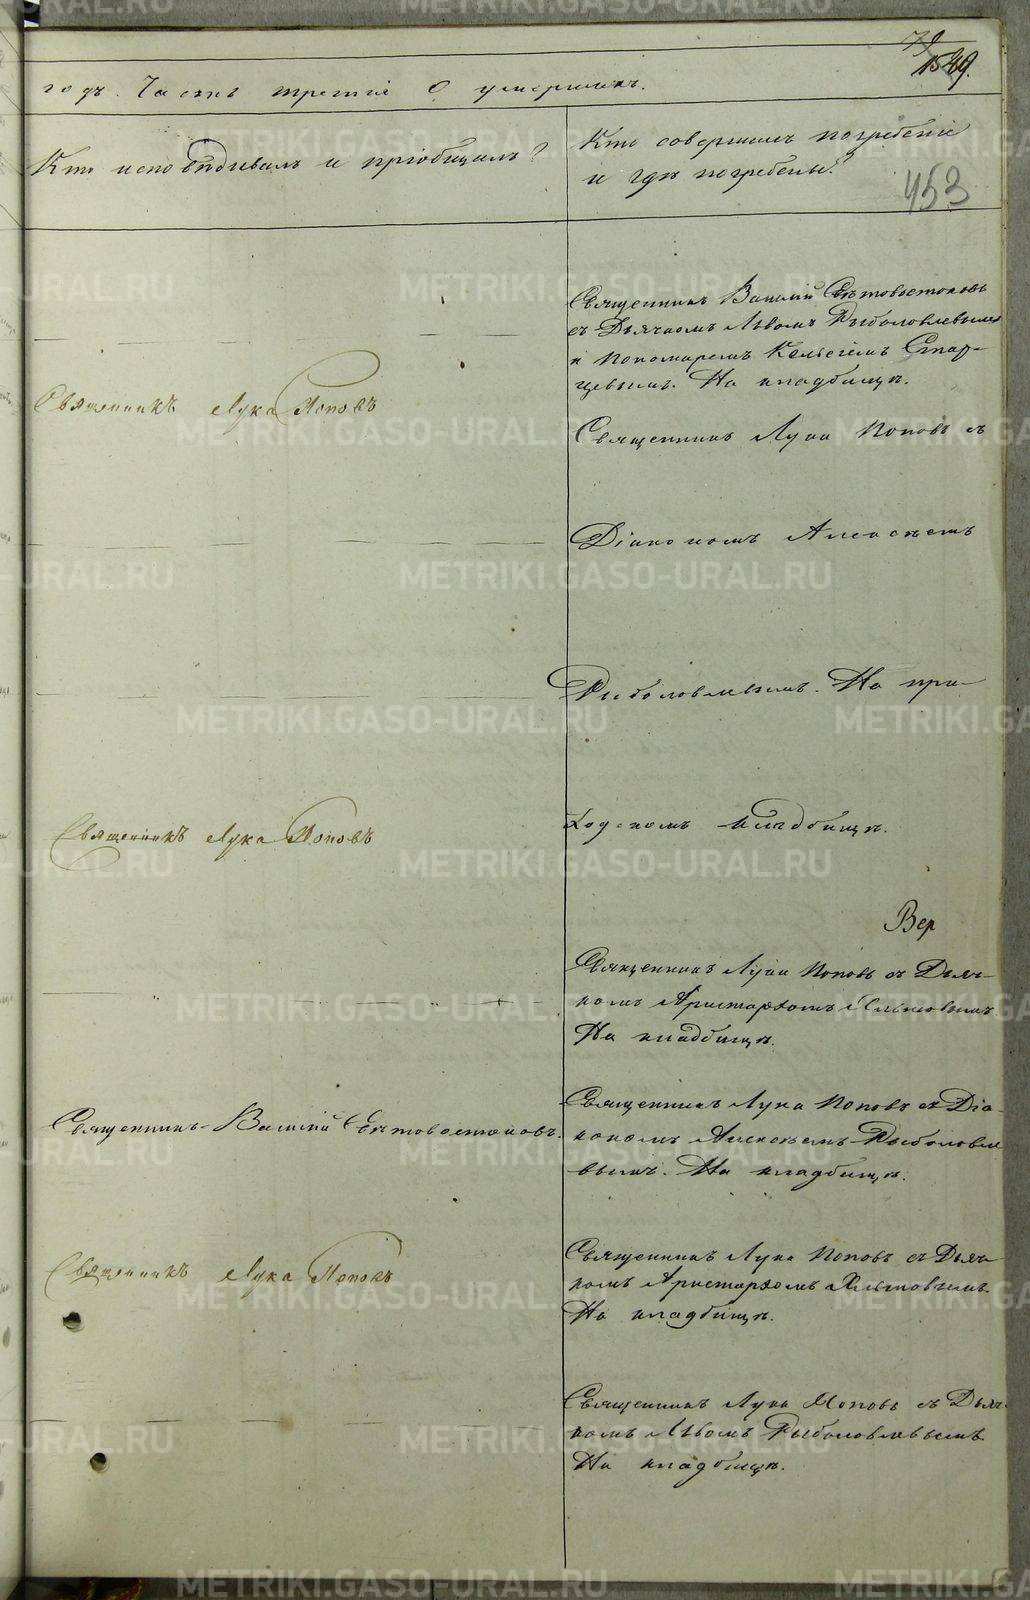 годъ. Часть третія О умершихъ.
Кто исповѣдывалъ и пріобщалъ?
Кто совершалъ погребеніе
и гдѣ погребены?
453
Священникъ Василій Свѣтовостоковъ
съ Дьячкомъ Львомъ Рыболовлевымъ
и Пономаремъ Стар-
цевымъ. На кладбищѣ.
Священникъ Лука Поповъ
Священникъ Лука Поповъ съ
Діакономъ Алексѣемъ
Рыболовлевымъ. На при-
ходскомъ кладбищѣ.
Священникъ Лука Поповъ
Вер
Священникъ Лука Поповъ съ Дьяч-
комъ Аристархомъ Хлыновымъ
На кладбищѣ.
Священникъ Василій Свѣтовостоковъ.
Священникъ Лука Поповъ съ Діа-
кономъ Алексѣемъ Рыболовле
вымъ. На кладбищѣ.
Священникъ Лука Поповъ
Священникъ Лука Поповъ съ Дьяч-
комъ Аристархомъ Хлыновымъ.
На кладбищѣ.
Священникъ Лука Поповъ съ Дьяч-
комъ Львомъ Рыболовлевымъ.
На кладбищѣ.
METRIKI.GASO-URAL.RU